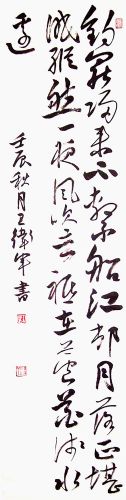 釣罷歸来不繫船江邨月落正堪
眠縱然一夜風吹去祇在蘆花淺水
邊
壬辰秋月王衛軍書